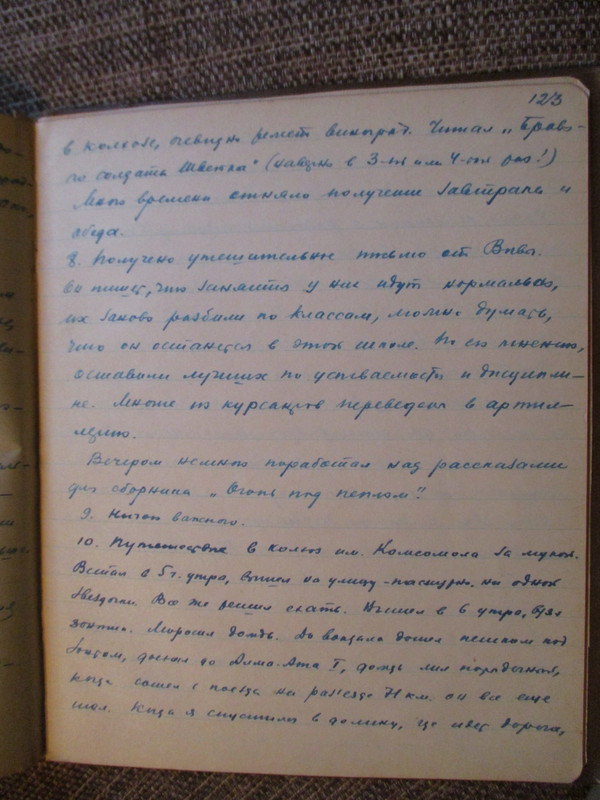 123
в колхозе, очевидно ремет виноград. Читал „Браво-
го солдата Швейка" (наверно в 3-ий или 4-ый раз!)
Много времени отняло получение завтрака и
обеда.
8. Получено утешительное письмо от Вивы.
Он пишет, что занятия у них идут нормально,
их заново разбили по классам, можно думать,
что он останется в этой школе. По его мнению,
оставили лучших по успеваемости и дисципли-
не. Многие из курсантов переведены в артил-
лерию.
Вечером немного поработал над рассказами
для сборника „Огонь под пеплом".
9. Ничего важного.
10. Путешествие в колхоз им. Комсомола за мукой.
Встал в 5 ч. утра, вышел на улицу - пасмурно. ни одной
звездочки. Все же решил ехать. Вышел в 6 утра, взял
зонтик. Моросил дождь. До вокзала дошел пешком под
дождем, доехал до Алма-Ата I, дождь лил порядочный,
когда сошел с поезда на раз'езде 71 км. он все еще
шел. Когда я спустился в долину, где идет дорога,